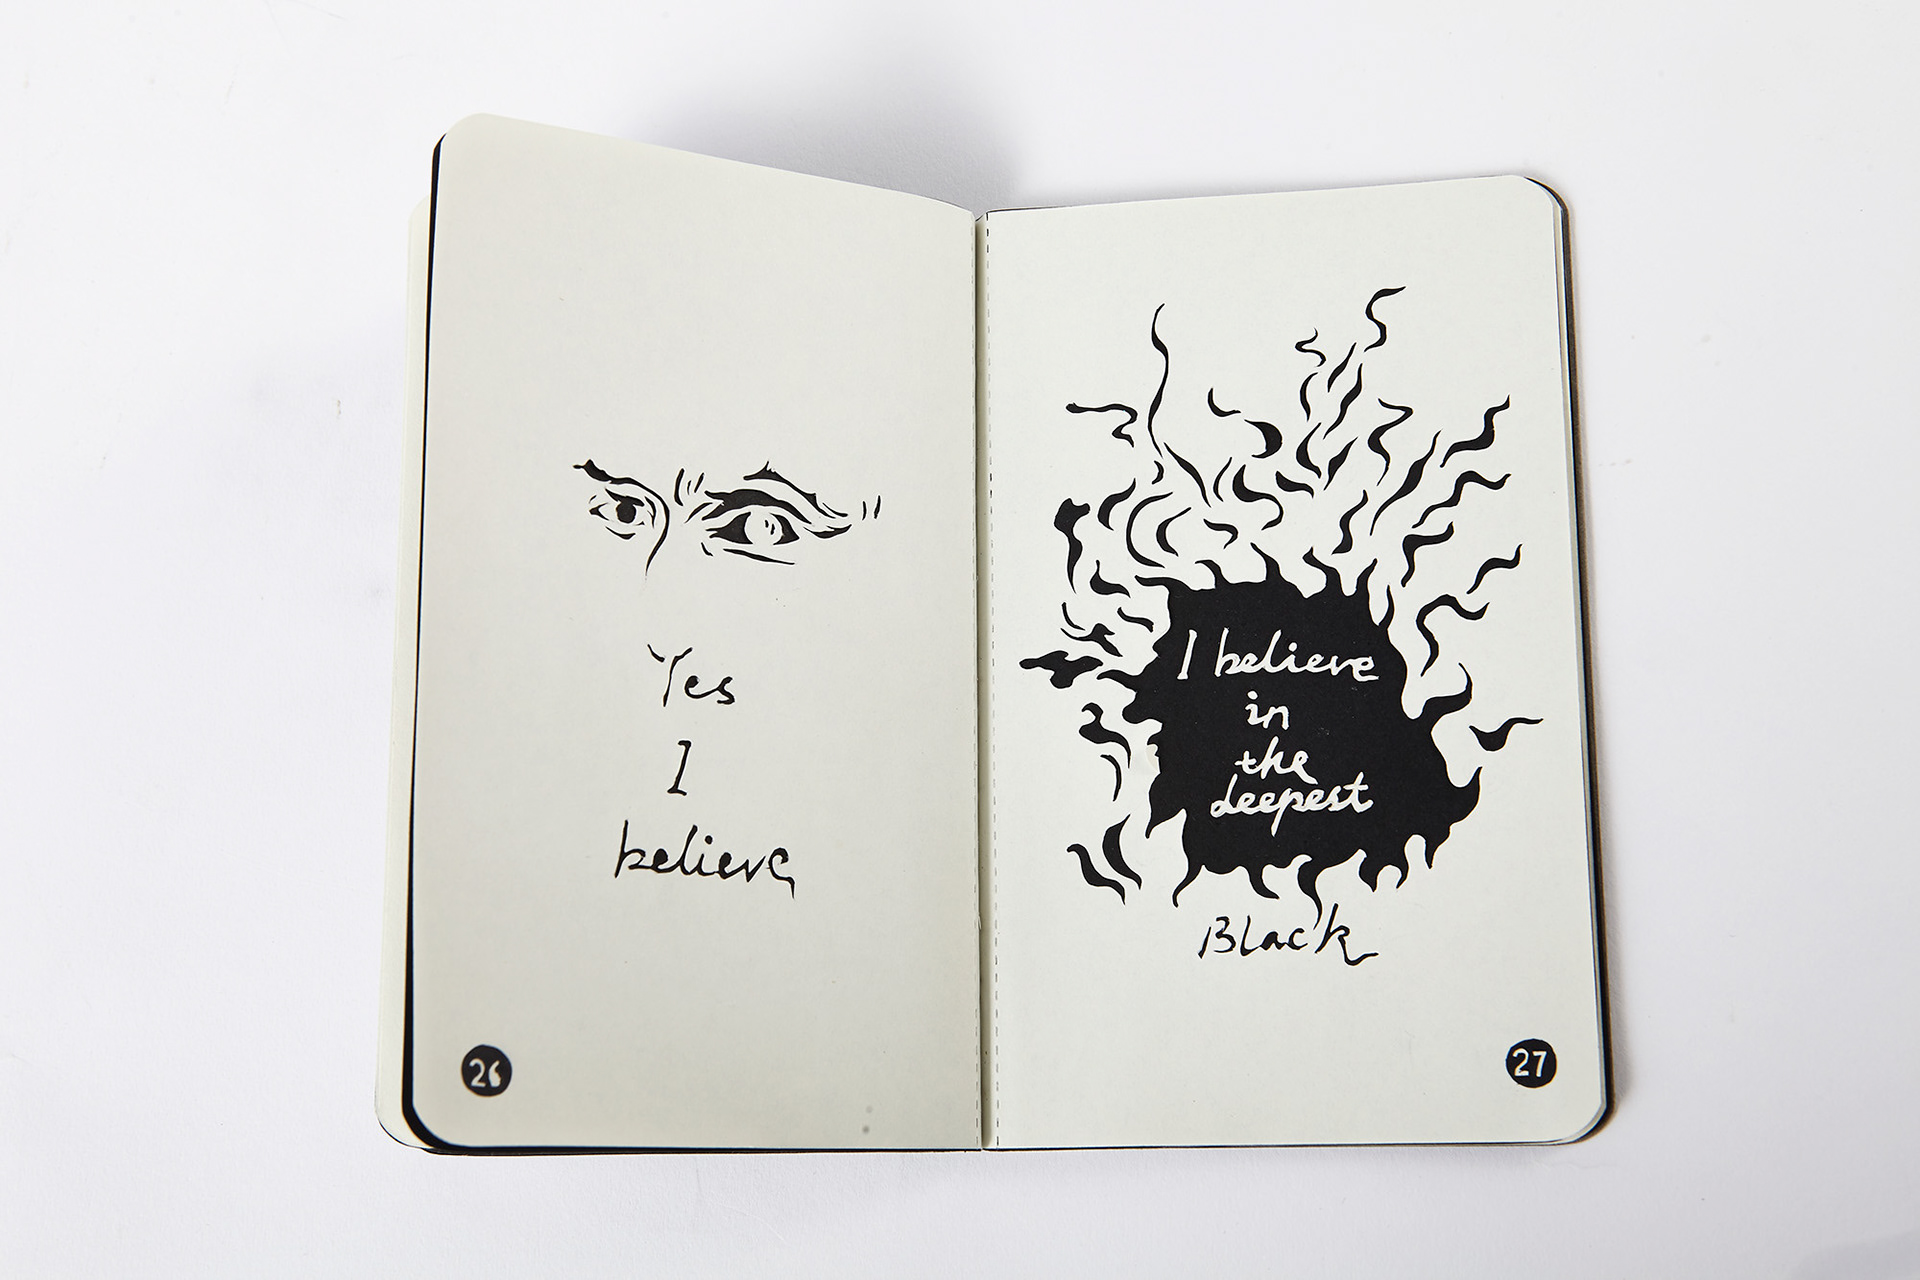 Yes
I
believe
26
I believe
in
the
deepest
Black
27